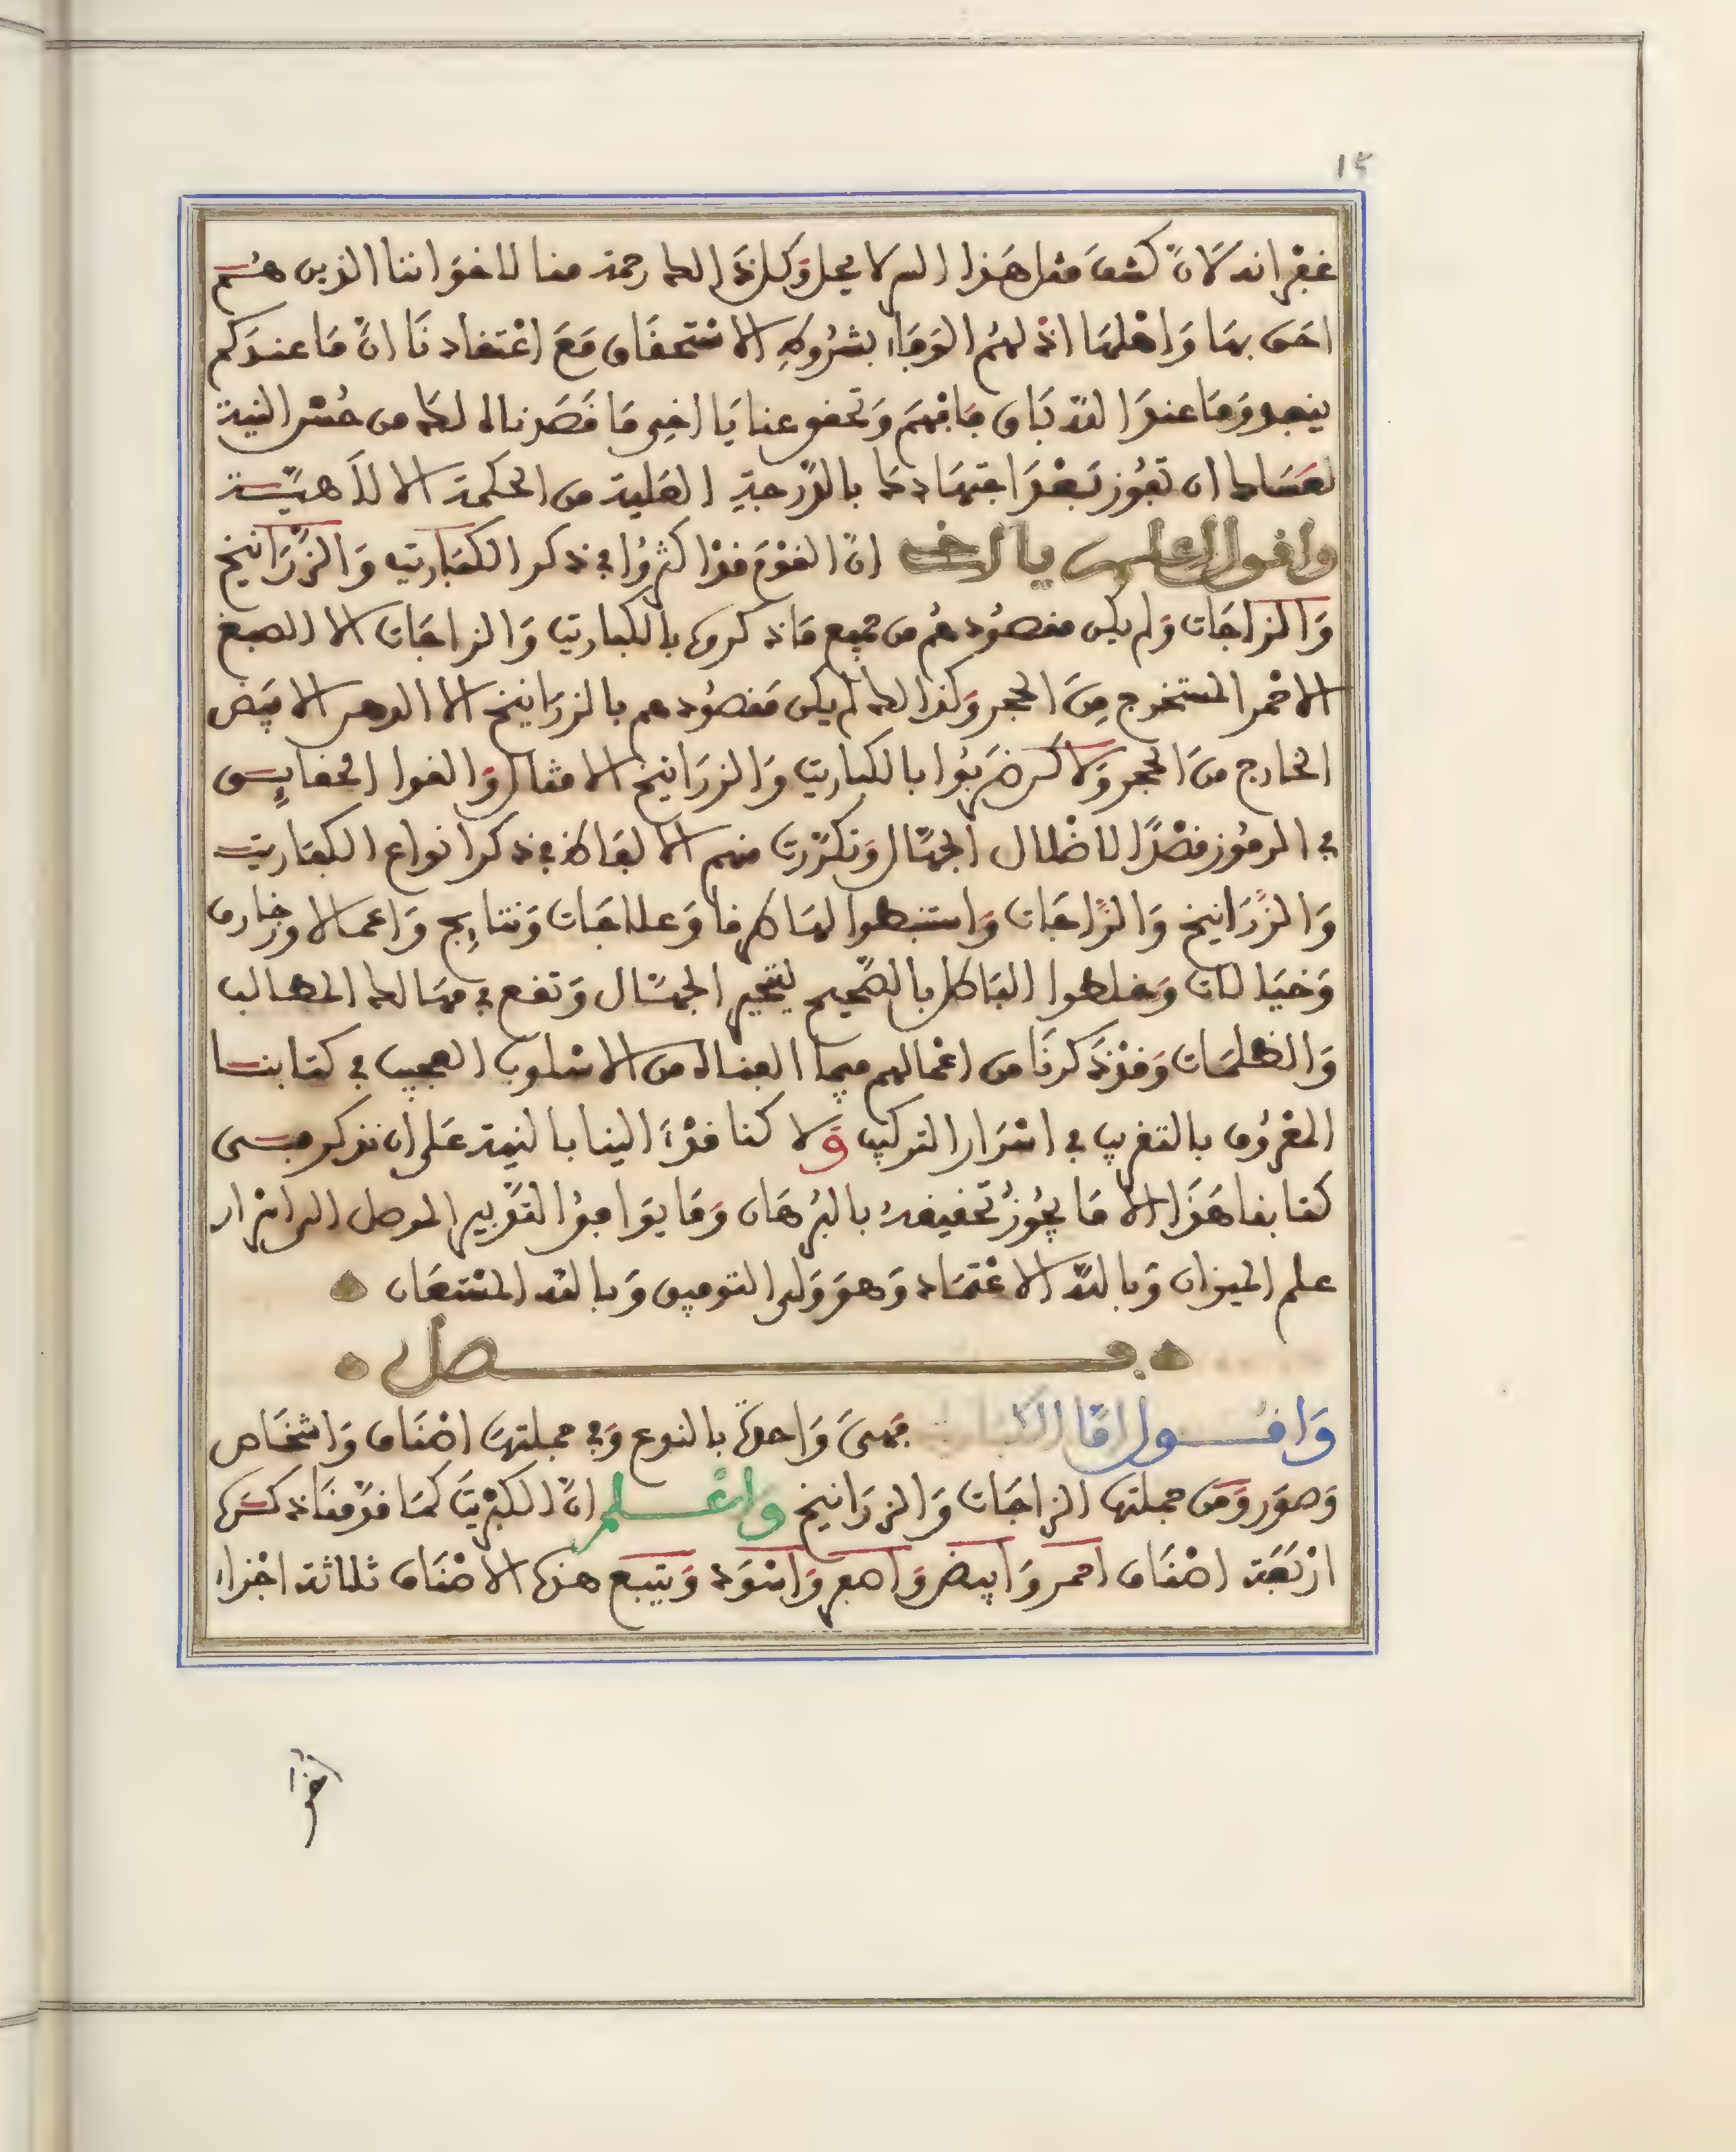 ١٢
غفرانه لان كشف مثل هذا السر لا يحل وكل ذالك رحمة منا لاخواننا الذين هم
احق بها واهلها اذ لهم الوفاء بشروط الاستحقاق مع اعتقادنا ان ما عندكم
ينفد وما عند الله باق فافهم وتحقق عنا يا اخي ما قصدناه لك من حسن النية
لعساك ان تفوز بعد اجتهادك بالدرجة العلية من الحكمة الالاهية
واقول ان القوم قد اكثروا في ذكر الكباريت والزرانيخ
والزاجات ولم يكن مقصودهم من جميع ما ذكروه بالكباريت والزاجات الا الصبغ
الاحمر المستخرج من الحجر وكذالك لم يكن مقصودهم بالزرانيخ الا الدهر الابيض
الخارج من الحجر ولاكن ضربوا بالكباريت والزرانيخ الامثال والغوا الحقايق
في الرموز قصدا لاضلال الجهال وتكررت منهم الالفاظ في ذكر انواع الكباريت
والزرانيخ والزاجات واستنبطوا لها طرفا وعلاجات ونتايج واعمالا وزخارف
وخيالات وخلطوا الباطل بالصحيح ليتحير الجهال وتقع في مهالك المطالب
والظلمات وقد ذكرنا من اعمالهم فيما الفناه من الاسلوب العجيب في كتابنا
المعروف بالتقريب في اسرار التركيب ولا كنا قد ءالينا بالنية على ان نذكر في
كتابنا هذا الا ما يجوز تحقيقه بالبرهان وما يوافق التدبير الموصل الى اسرار
علم الميزان وبالله الاعتماد وهو ولى التوفيق وبالله المستعان
فصل
واقول اما فهى واحدة بالنوع وفي جملتها اصناف واشخاص
وصور ومن جملتها الزاجات والزرانيخ واعلم ان الكبريت كما قدمنا ذكره
اربعة اصناف احمر وابيض واصفر واسود ويتبع هذه الاصناف ثلاثة اجزاء